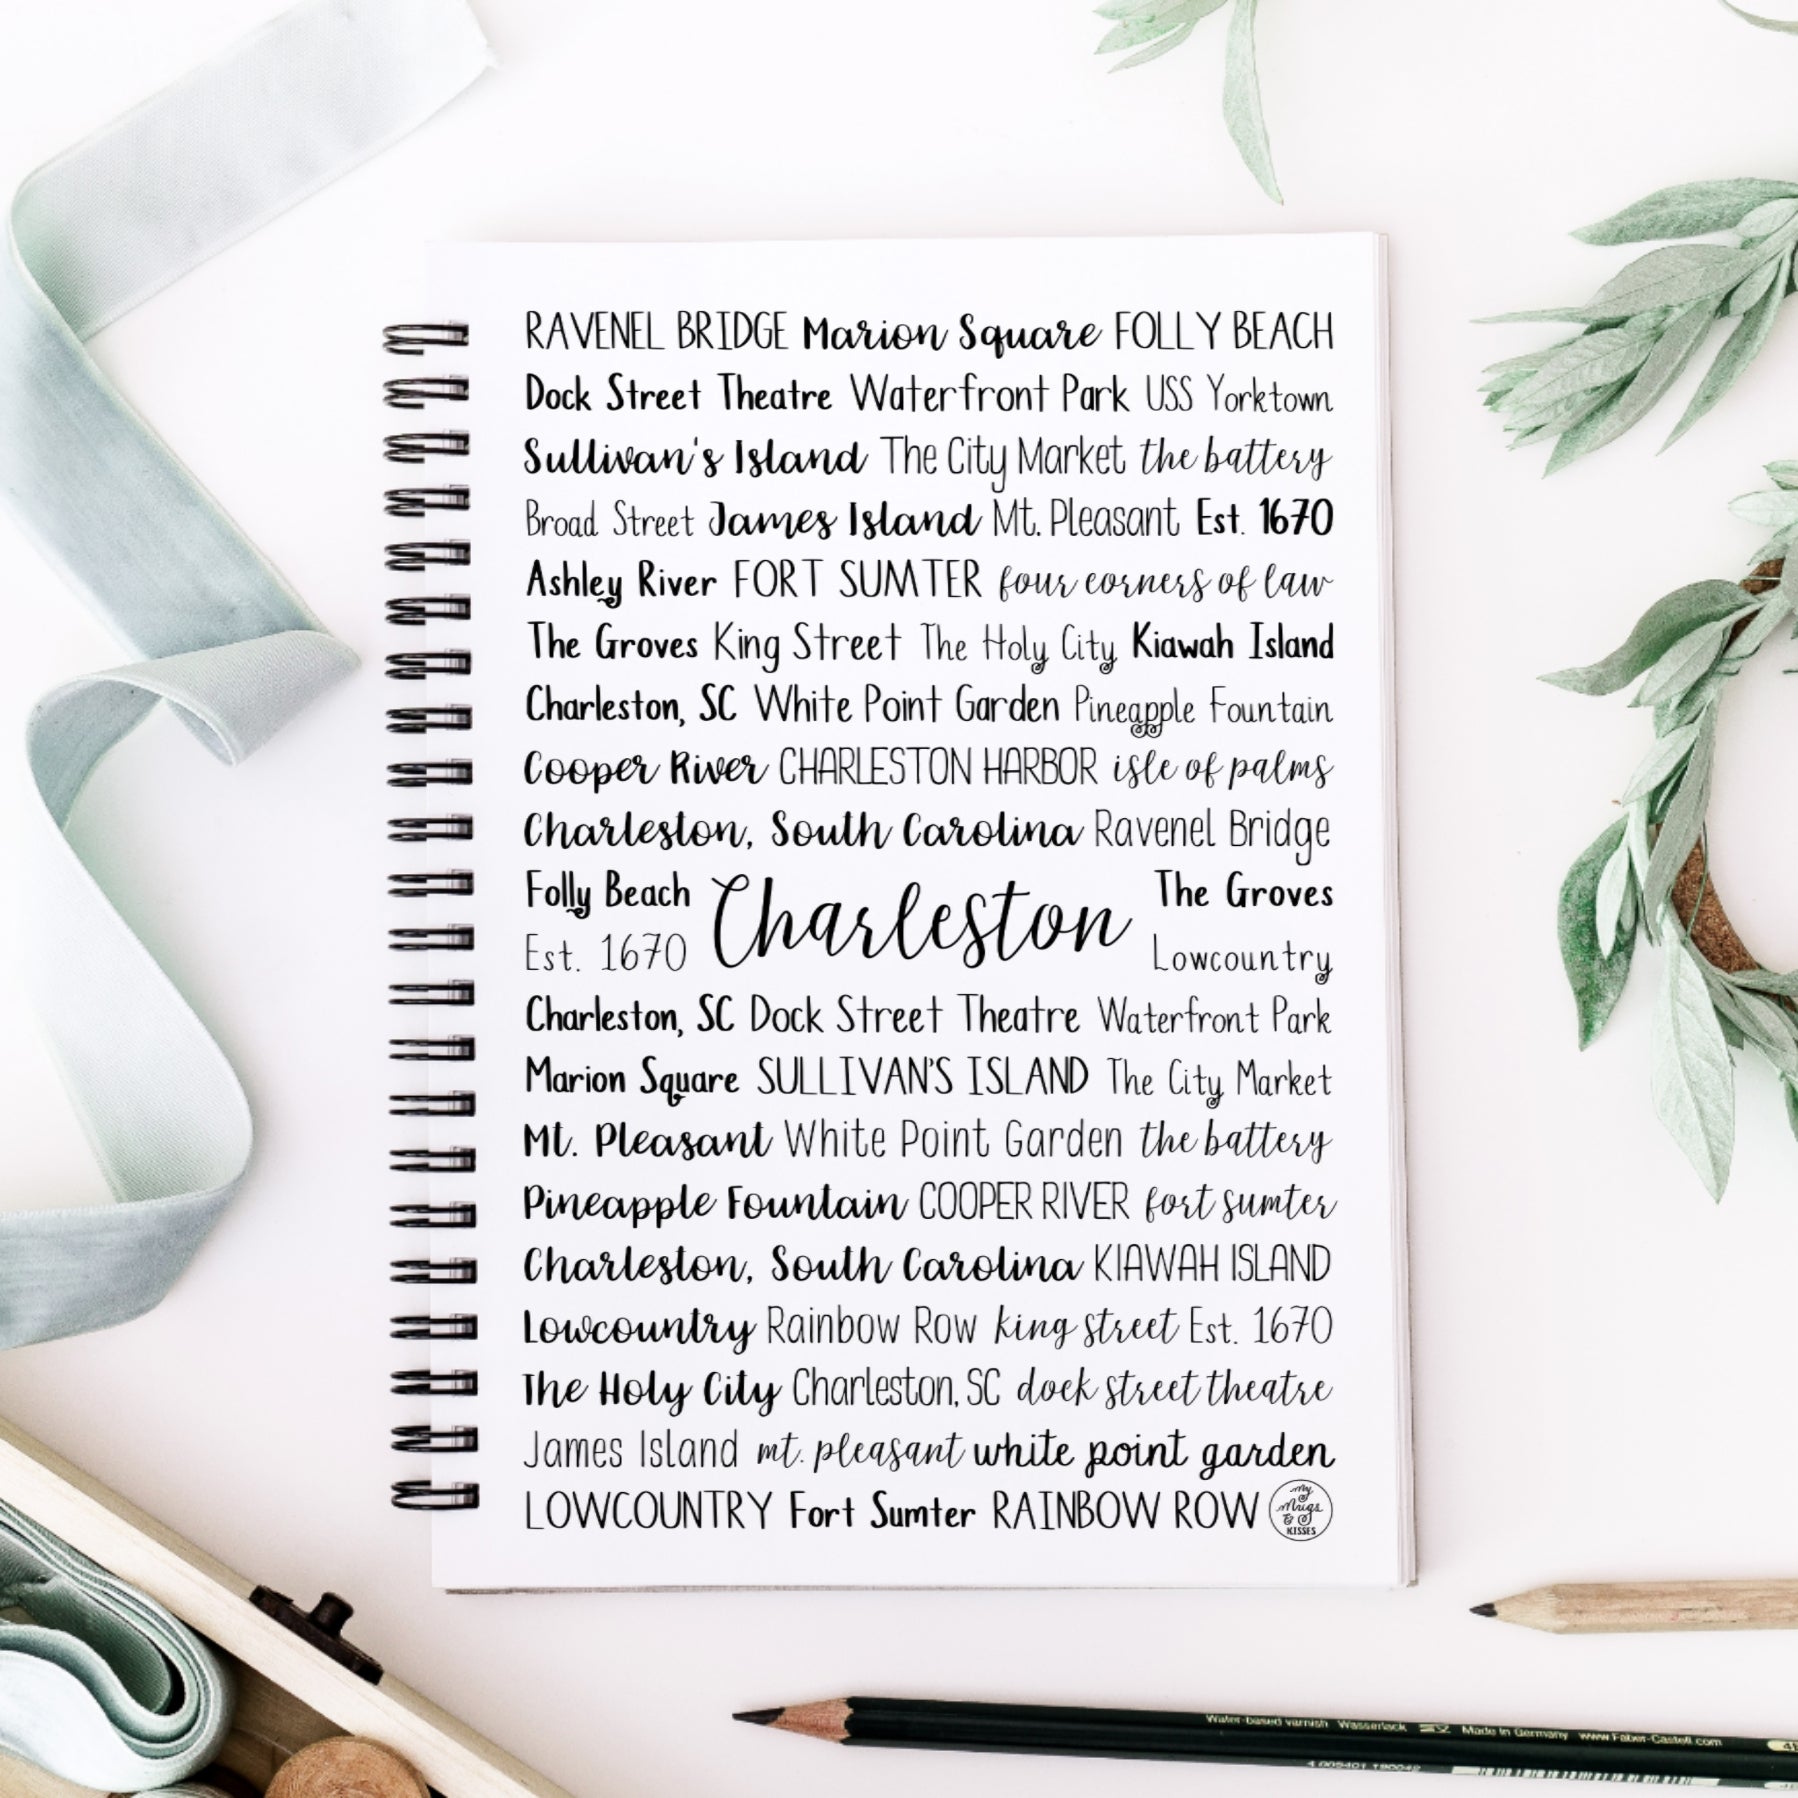 RAVENEL BRIDGE Marion Square FOLLY BEACH
Dock Street Theatre Waterfront Park USS Yorktown
Sullivan's Island The City Market the battery
Broad Street James Island Mt. Pleasant Est. 1670
Ashley River FORT SUMTER four corners of law
The Groves King Street The Holy City Kiawah Island
Charleston, SC White Point Garden Pineapple Fountain
Cooper River CHARLESTON HARBOR isle of palms
Charleston, South Carolina Ravenel Bridge
Folly Beach Charleston The Groves
Est. 1670 Lowcountry
Charleston, SC Dock Street Theatre Waterfront Park
Marion Square SULLIVAN'S ISLAND The City Market
Mt. Pleasant White Point Garden the battery
Pineapple Fountain COOPER RIVER fort sumter
Charleston, South Carolina KIAWAH ISLAND
Lowcountry Rainbow Row king street Est. 1670
The Holy City Charleston, SC dock street theatre
James Island mt. pleasant white point garden
LOWCOUNTRY Fort Sumter RAINBOW ROW
My
Mugs
&
KISSES
Water-based varnish Wasserlack Made in Germany www.Faber-Castell.com
4 005401 190042